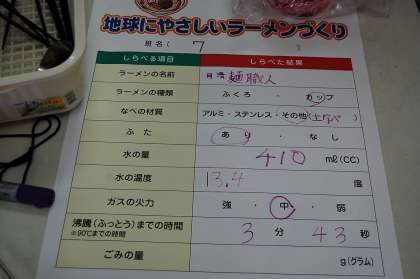 地球にやさしいラーメンづくり
班名( 7 )
しらべる項目 しらべた結果
ラーメンの名前 日清 麺職人
ラーメンの種類 ふくろ ・ カップ
なべの材質 アルミ・ステンレス・その他(土なべ)
ふた あり ・ なし
水の量 410 ml(CC)
水の温度 13.4 度
ガスの火力 強 ・ 中 ・ 弱
沸騰(ふっとう)までの時間 3 分 43 秒
※90℃までの時間
ごみの量 g(グラム)